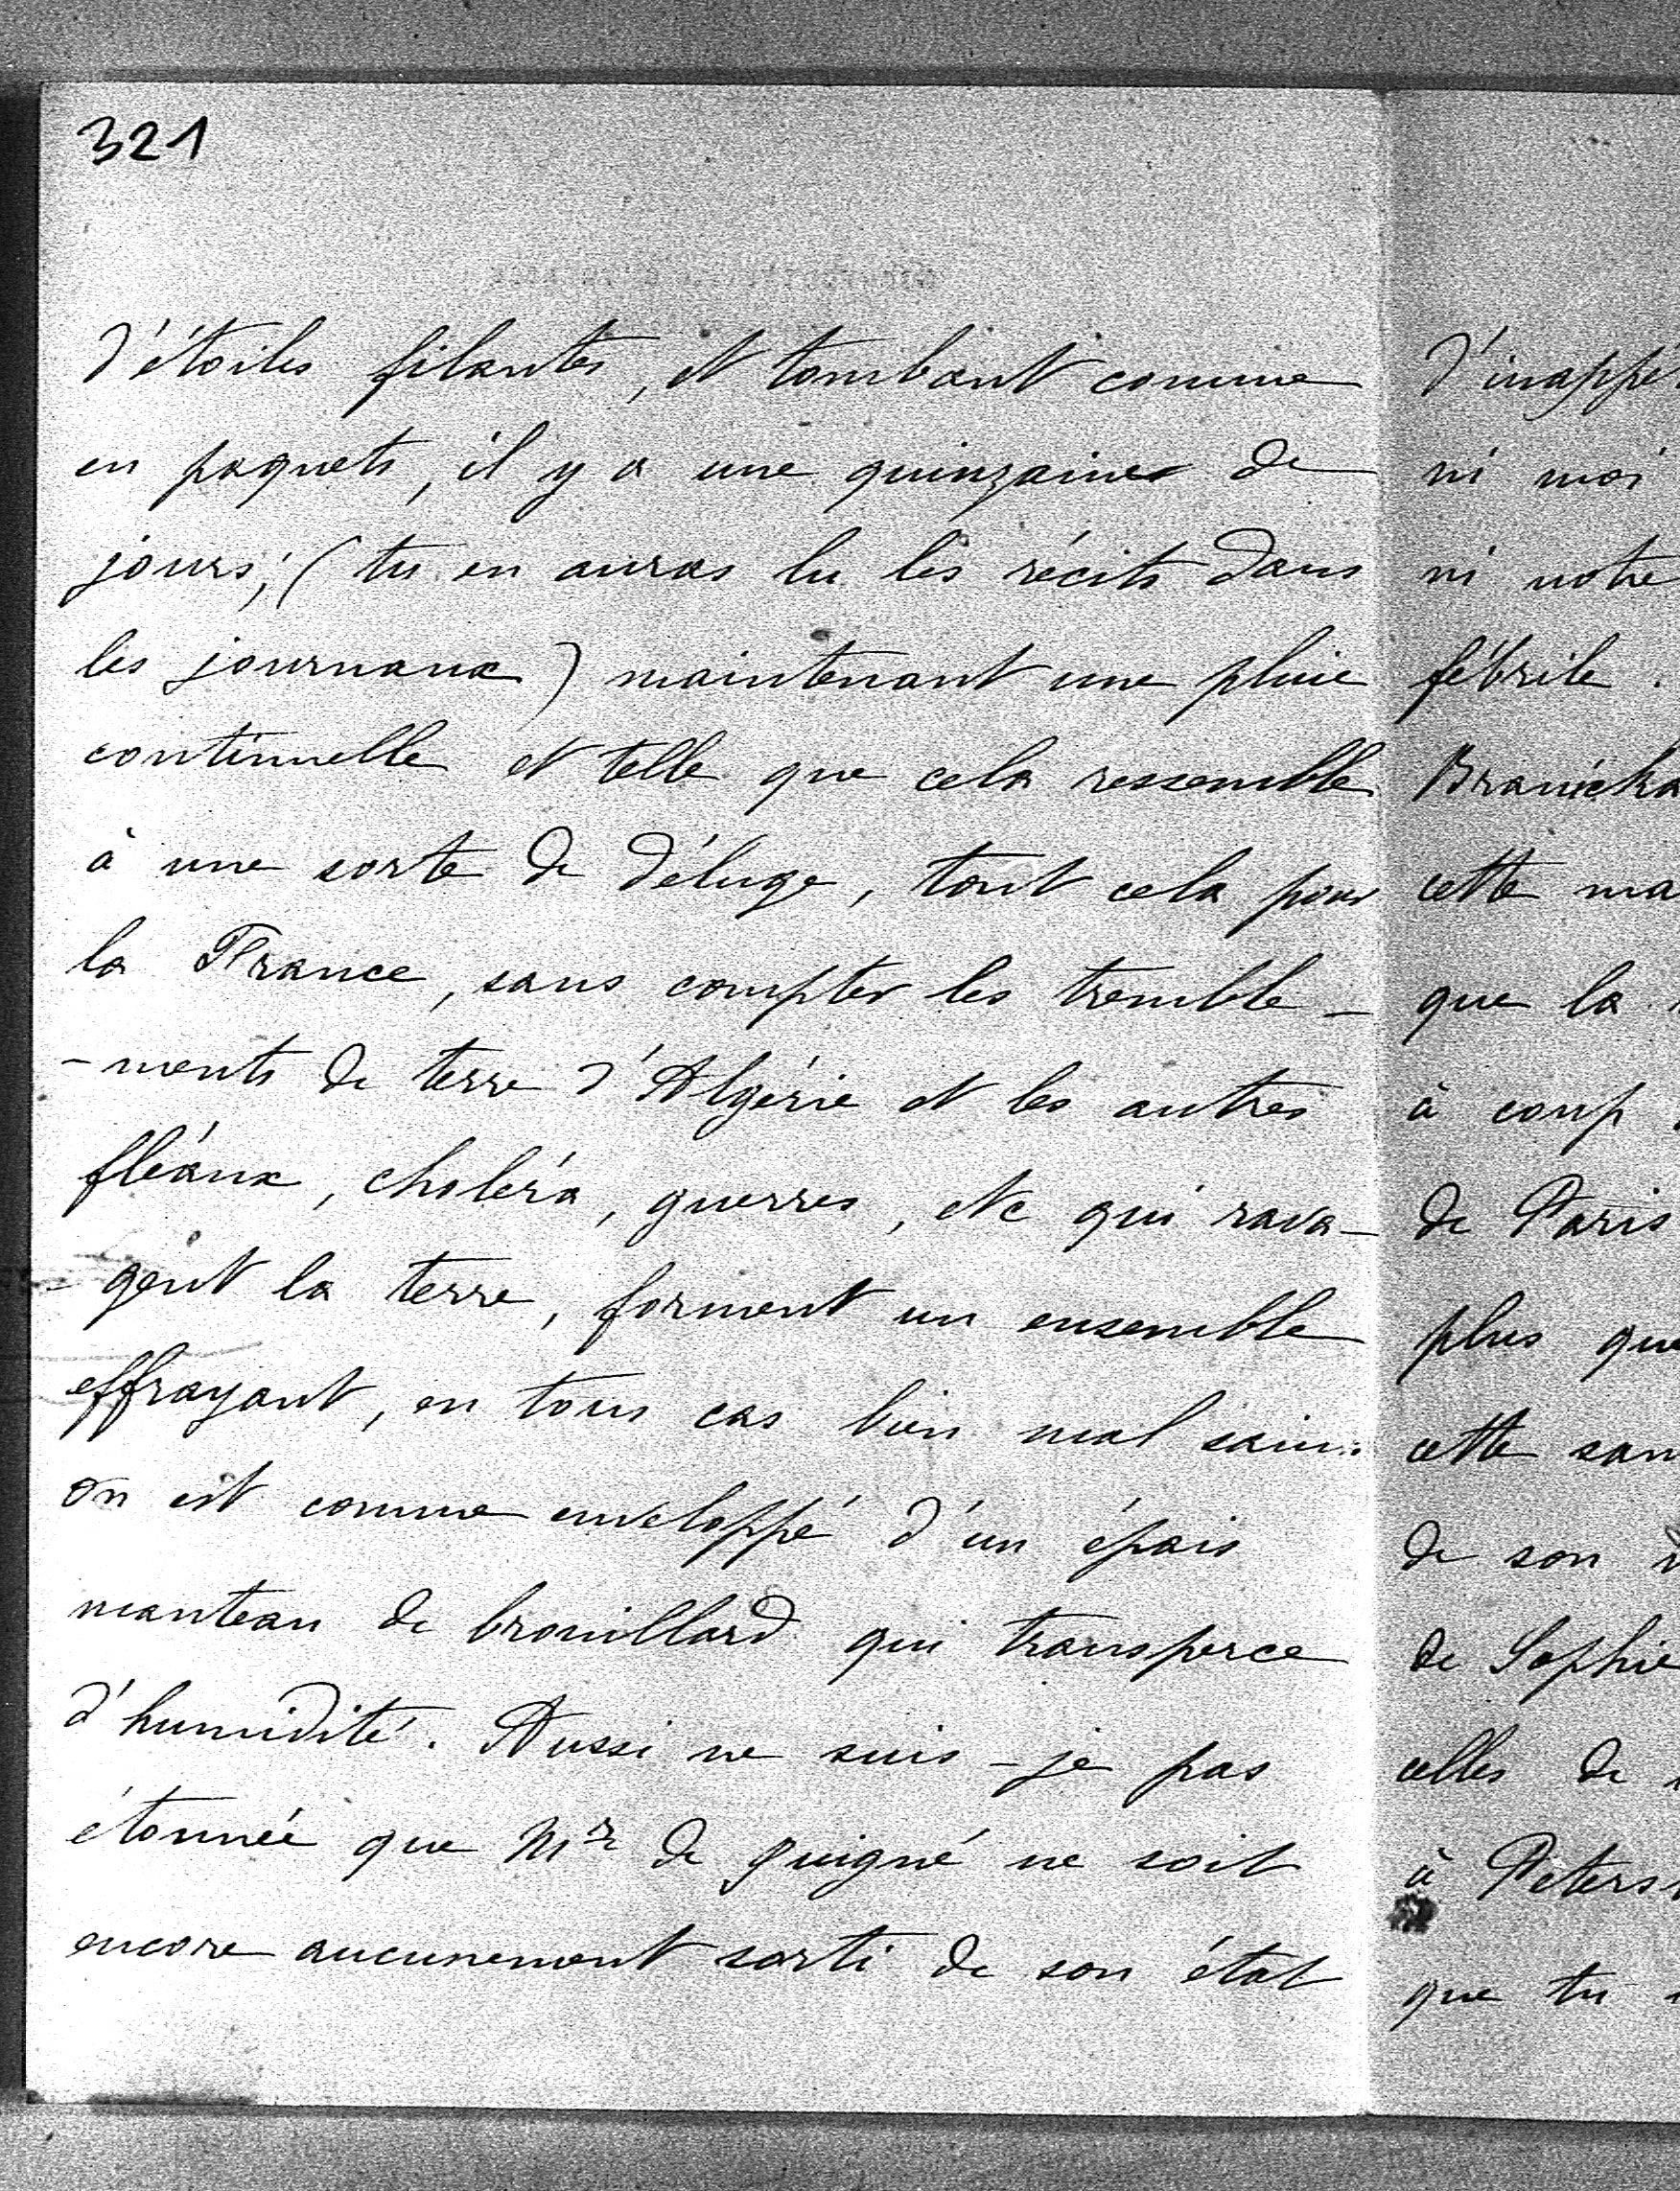 321
d'étoiles filantes, et tombant comme
en paquets, il y a une quinzaine de
jours; (tu en auras lu les récits dans
les journaux) maintenant une pluie
continuelle et telle que cela ressemble
à une sorte de déluge, tout cela pour
la France, sans compter les tremble-
-ments de terre d'Algérie et les autres
fléaux, choléra, guerres, etc qui rava-
-gent la terre, forment un ensemble
effrayant, en tous cas bien mal sain.
on est comme enveloppé d'un épais
manteau de brouillard qui transperce
d'humidité. Aussi ne suis-je pas
étonnée que Mr de Quigné ne soit
encore aucunement sorti de son état
d'inappé
ni moi
ni notre
fébrile.
Branicka
cette ma
que la
à coup
de Paris
plus que
cette san
de son
de Sophie
celles de
à Peters
que tu